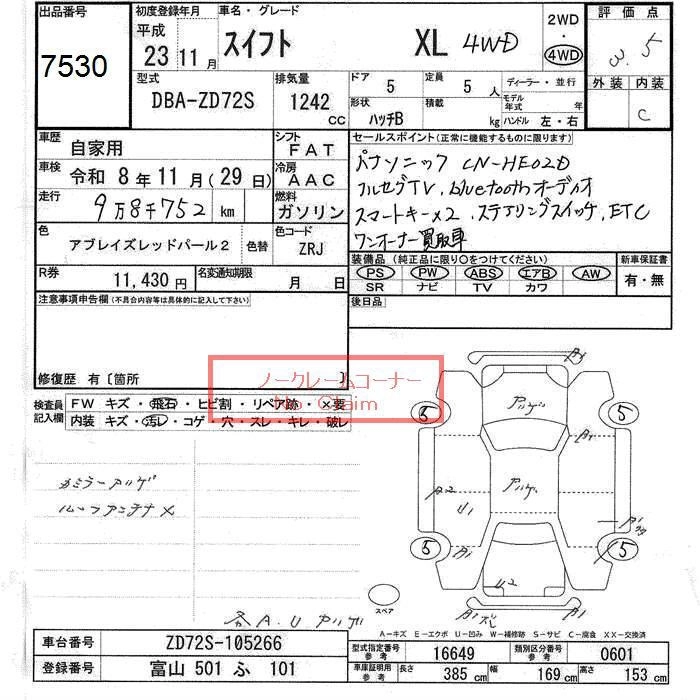 出品番号
7530
初度登録年月
平成
23 11月
車名・グレード
スイフト XL 4WD
2WD
・
4WD
評価点
3.5
外装 内装
C
型式
DBA-ZD72S
排気量
1242
cc
ドア 5
定員 5 人
ディーラー・並行
形状 ハッチB
積載 kg
モデル年式 年
ハンドル 左・右
車歴 自家用
シフト FAT
車検 令和 8年 11月(29日)
冷房 AAC
走行 9万8千752 km
燃料 ガソリン
色 アブレイズレッドパール2 色替
色コード ZRJ
R券 11,430 円
名変通知期限 月 日
セールスポイント(正常に機能するものに限ります)
パナソニック CN-HE02D
フルセグTV, bluetoothオーディオ
スマートキー×2, ステアリングスイッチ, ETC
ワンオーナー買取車
装備品(純正品に限り○をつけてください)
新車保証書
PS PW ABS エアB AW
SR ナビ TV カワ
有・無
後日品
注意事項申告欄(不具合内容等は具体的に記入して下さい)
修復歴 有〔箇所 〕
ノークレームコーナー
No Claim
検査員記入欄
FW キズ・飛石・ヒビ割・リペア跡・×要
内装 キズ・汚レ・コゲ・穴・スレ・キレ・破レ
カミラーアゲ
ルーフアンテナ×
各A.U アゲ
A1
アゲ
5 5
アゲ
A2
U1
A1
A1
5 5
U2
A1
スペア
A-キズ E-エクボ U-凹み W-補修跡 S-サビ C-腐食 XX-交換済
車台番号 ZD72S-105266
登録番号 富山 501 ふ 101
型式指定番号 参考 16649
類別区分番号 参考 0601
車庫証明用 参考 長さ 385 cm 幅 169 cm 高さ 153 cm